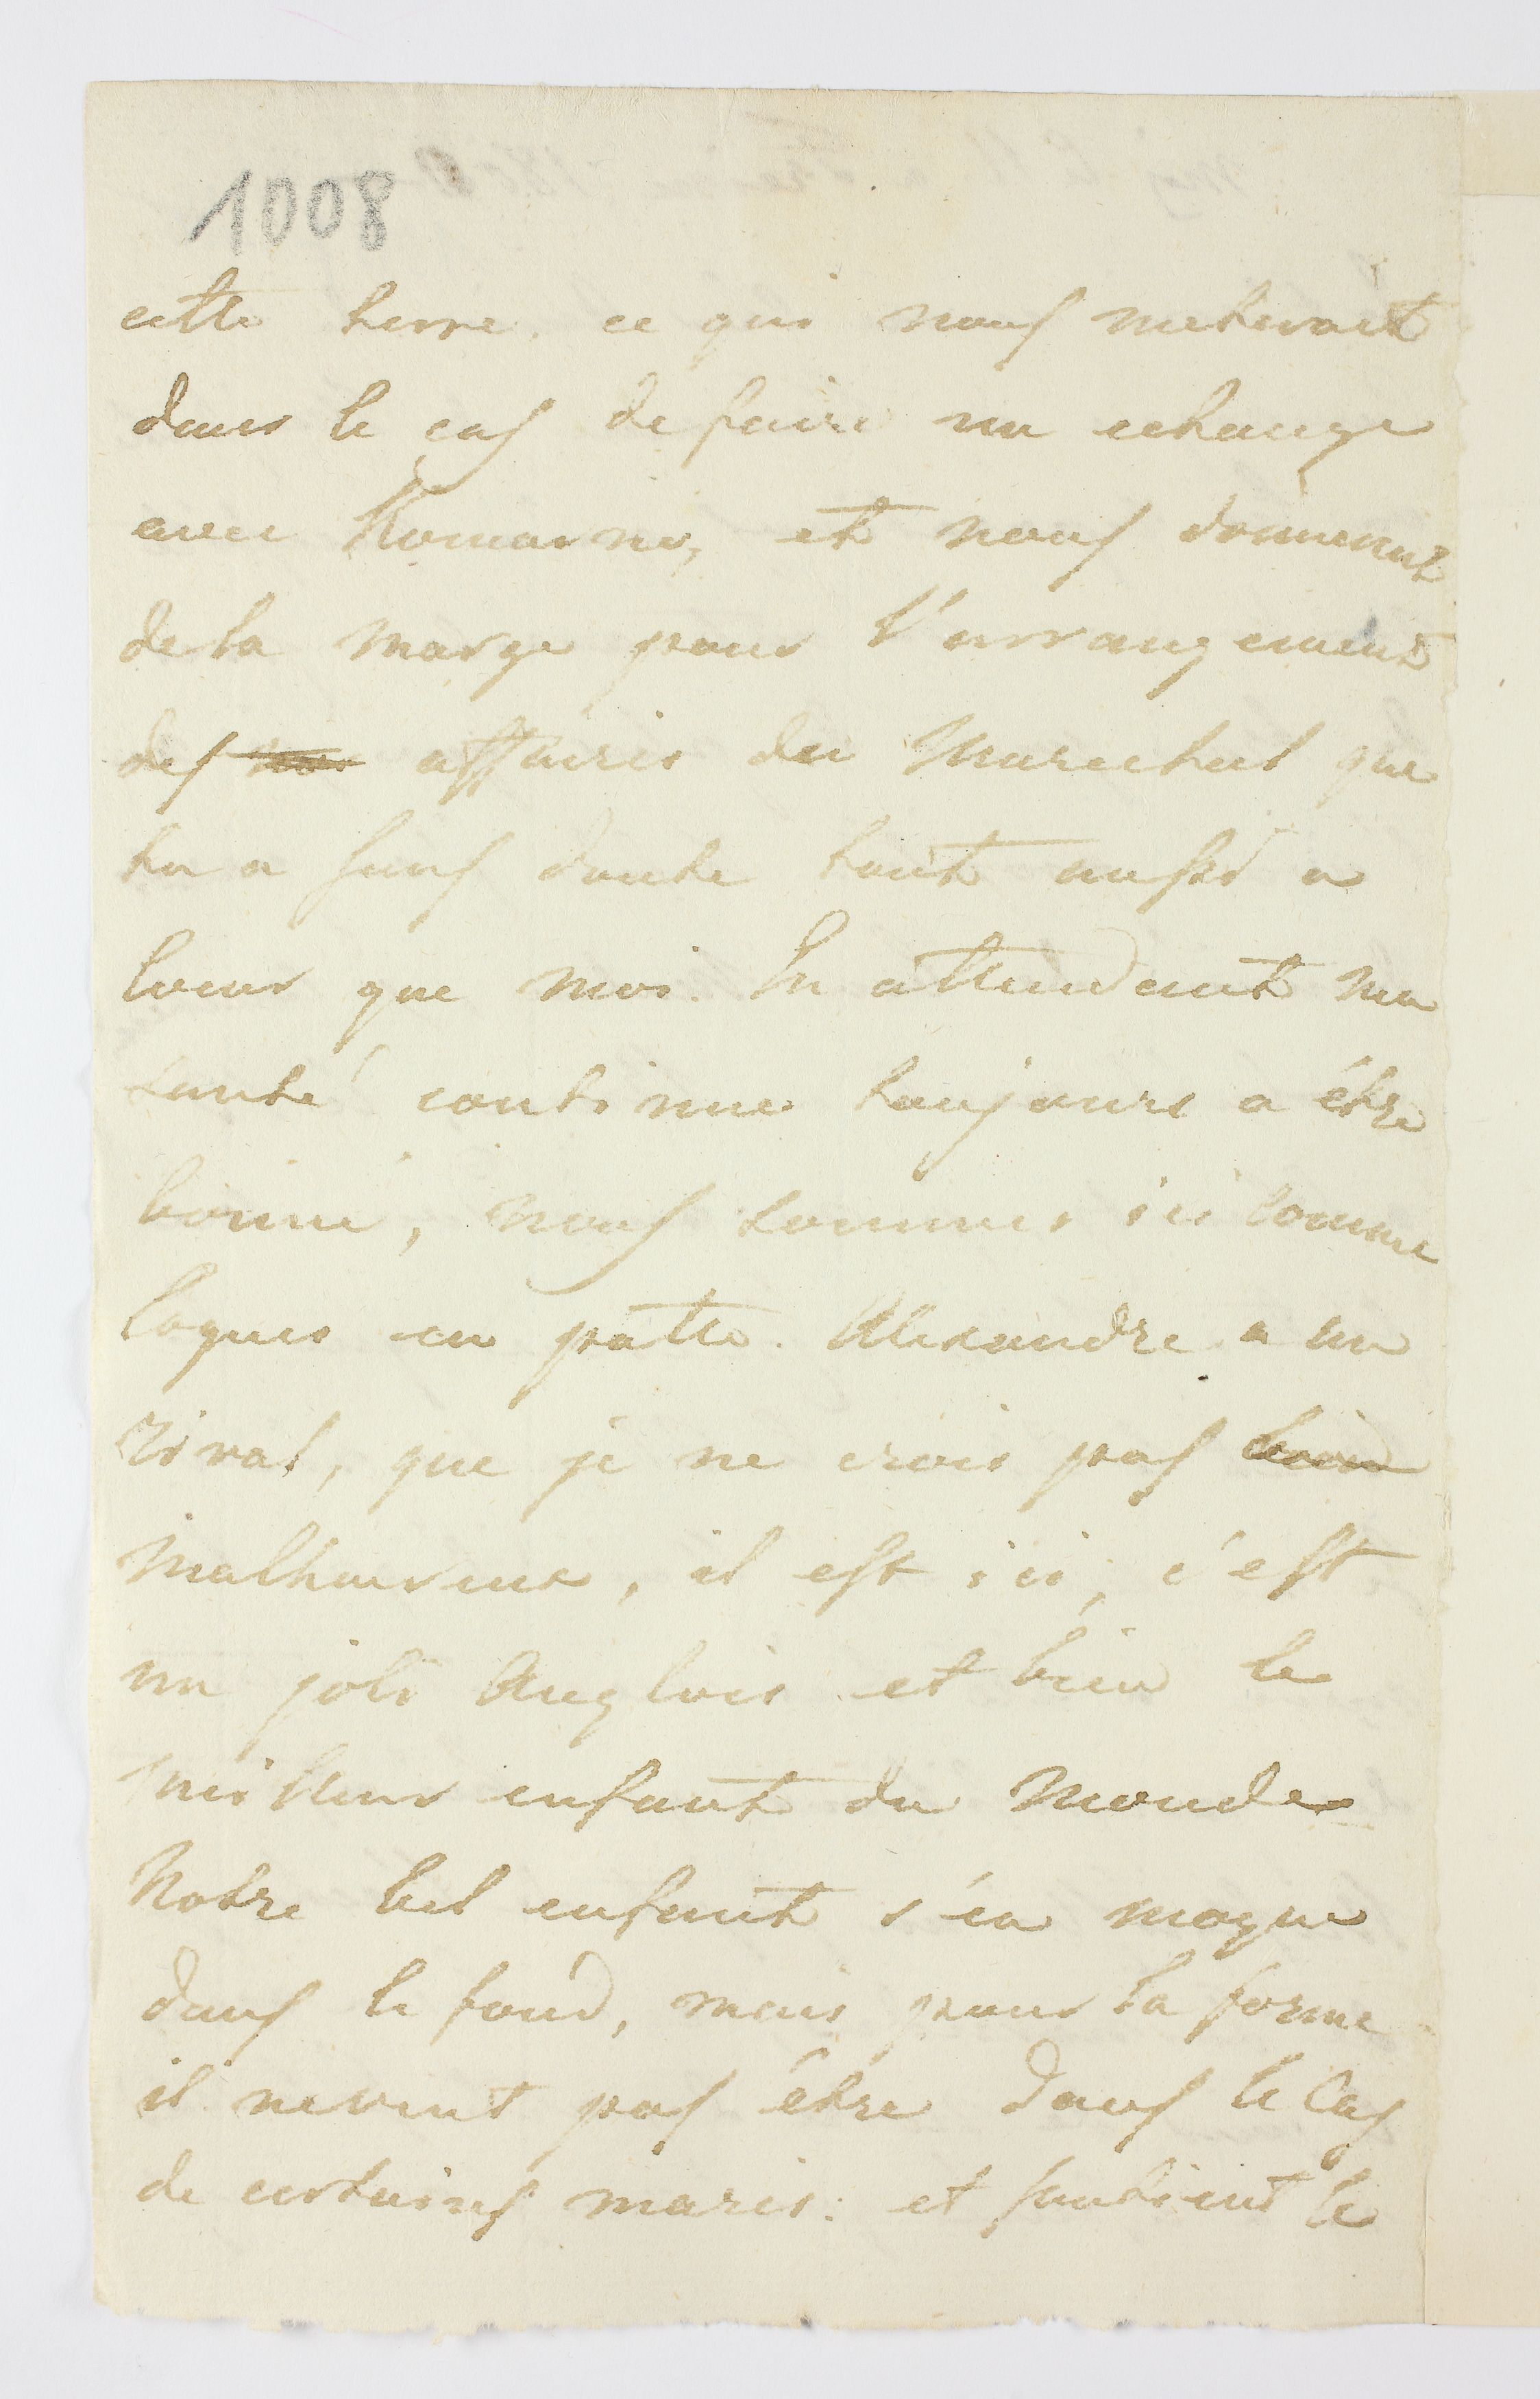 1008
cette terre. ce qui nous meteroit
dans le cas de faire un echange
avec Romainv, et nous donnerait
de la marge pour l'arrangement
des affaires du Marechal que
tu a sans doute tout aussi a
coeur que moi. En attendant ma
santé continue toujours a être
bonne, nous sommes ici comme
coques en patte. Alexandre a un
rival, que je ne crois pas
malheureux, il est ici, c'est
un joli Anglois et bien le
meilleur enfant du monde
Notre bel enfant s'en moque
dans le fond, mais pour la forme
il ne veut pas être dans le cas
de certains maris: et soutient le